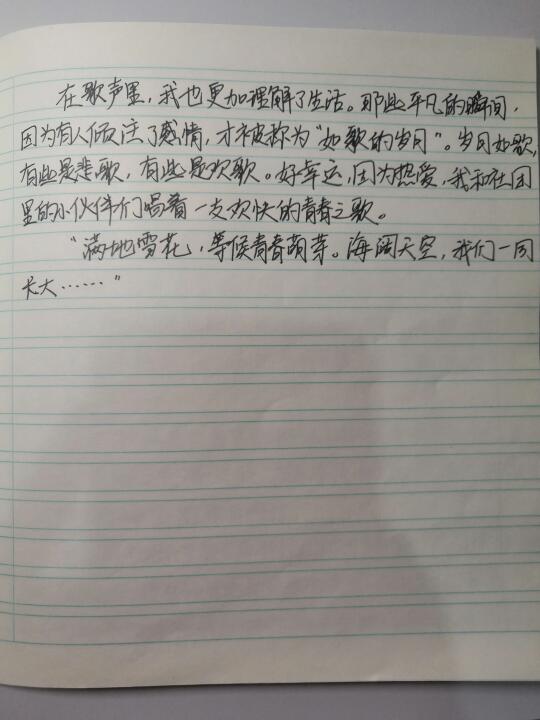 在歌声里，我也更加理解了生活。那些平凡的瞬间，
因为有人倾注了感情，才被称为“如歌的岁月”。岁月如歌，
有些是悲歌，有些是欢歌。好幸运，因为热爱，我和社团
里的小伙伴们唱着一支欢快的青春之歌。
“满地雪花，等候青春萌芽。海阔天空，我们一同
长大……”